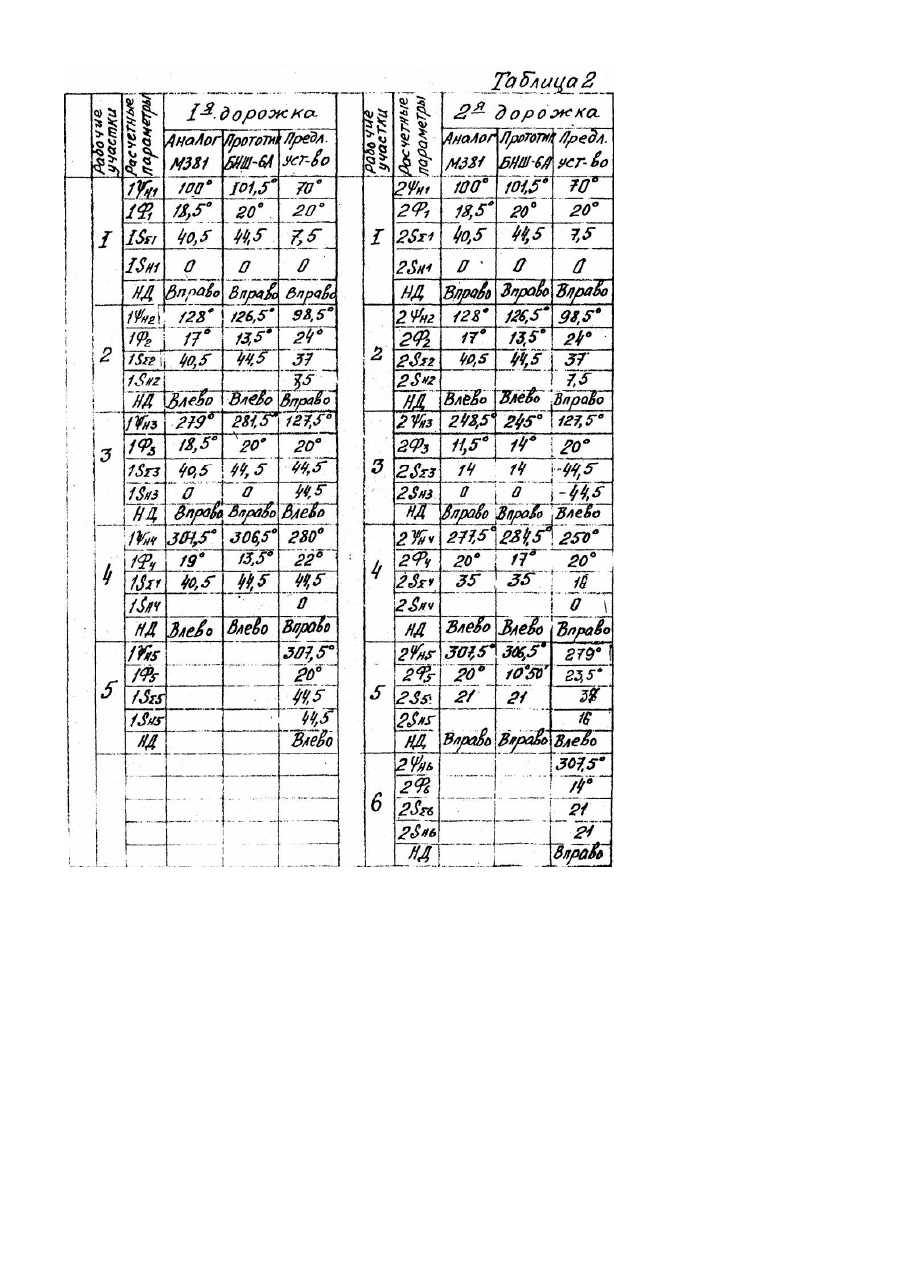 Таблица 2
Рабочие участки Расчетные параметры 1я дорожка Рабочие участки Расчетные параметры 2я дорожка
Аналог Прототип Предл. Аналог Прототип Предл.
М381 БНШ-6А уст-во М381 БНШ-6А уст-во
1Ψн1 100° 101,5° 70° 2Ψн1 100° 101,5° 70°
1Φ1 18,5° 20° 20° 2Φ1 18,5° 20° 20°
I 1SΣ1 40,5 44,5 7,5 I 2SΣ1 40,5 44,5 7,5
1Sн1 0 0 0 2Sн1 0 0 0
НД Вправо Вправо Вправо НД Вправо Вправо Вправо
1Ψн2 128° 126,5° 98,5° 2Ψн2 128° 126,5° 98,5°
1Φ2 17° 13,5° 24° 2Φ2 17° 13,5° 24°
2 1SΣ2 40,5 44,5 37 2 2SΣ2 40,5 44,5 37
1Sн2 7,5 2Sн2 7,5
НД Влево Влево Вправо НД Влево Влево Вправо
1Ψн3 279° 281,5° 127,5° 2Ψн3 248,5° 245° 127,5°
3 1Φ3 18,5° 20° 20° 2Φ3 11,5° 14° 20°
1SΣ3 40,5 44,5 44,5 3 2SΣ3 14 14 -44,5
1Sн3 0 0 44,5 2Sн3 0 0 -44,5
НД Вправо Вправо Влево НД Вправо Вправо Влево
1Ψн4 307,5° 306,5° 280° 2Ψн4 277,5° 284,5° 250°
1Φ4 19° 13,5° 22° 2Φ4 20° 17° 20°
4 1SΣ4 40,5 44,5 44,5 4 2SΣ4 35 35 16
1Sн4 0 2Sн4 0
НД Влево Влево Вправо НД Влево Влево Вправо
1Ψн5 307,5° 2Ψн5 307,5° 306,5° 279°
1Φ5 20° 2Φ5 20° 10°50' 23,5°
5 1SΣ5 44,5 5 2S5 21 21
1Sн5 44,5 2Sн5 16
НД Влево НД Вправо Вправо Влево
2Ψн6 307,5°
2Φ6 14°
6 2SΣ6 21
2Sн6 21
НД Вправо